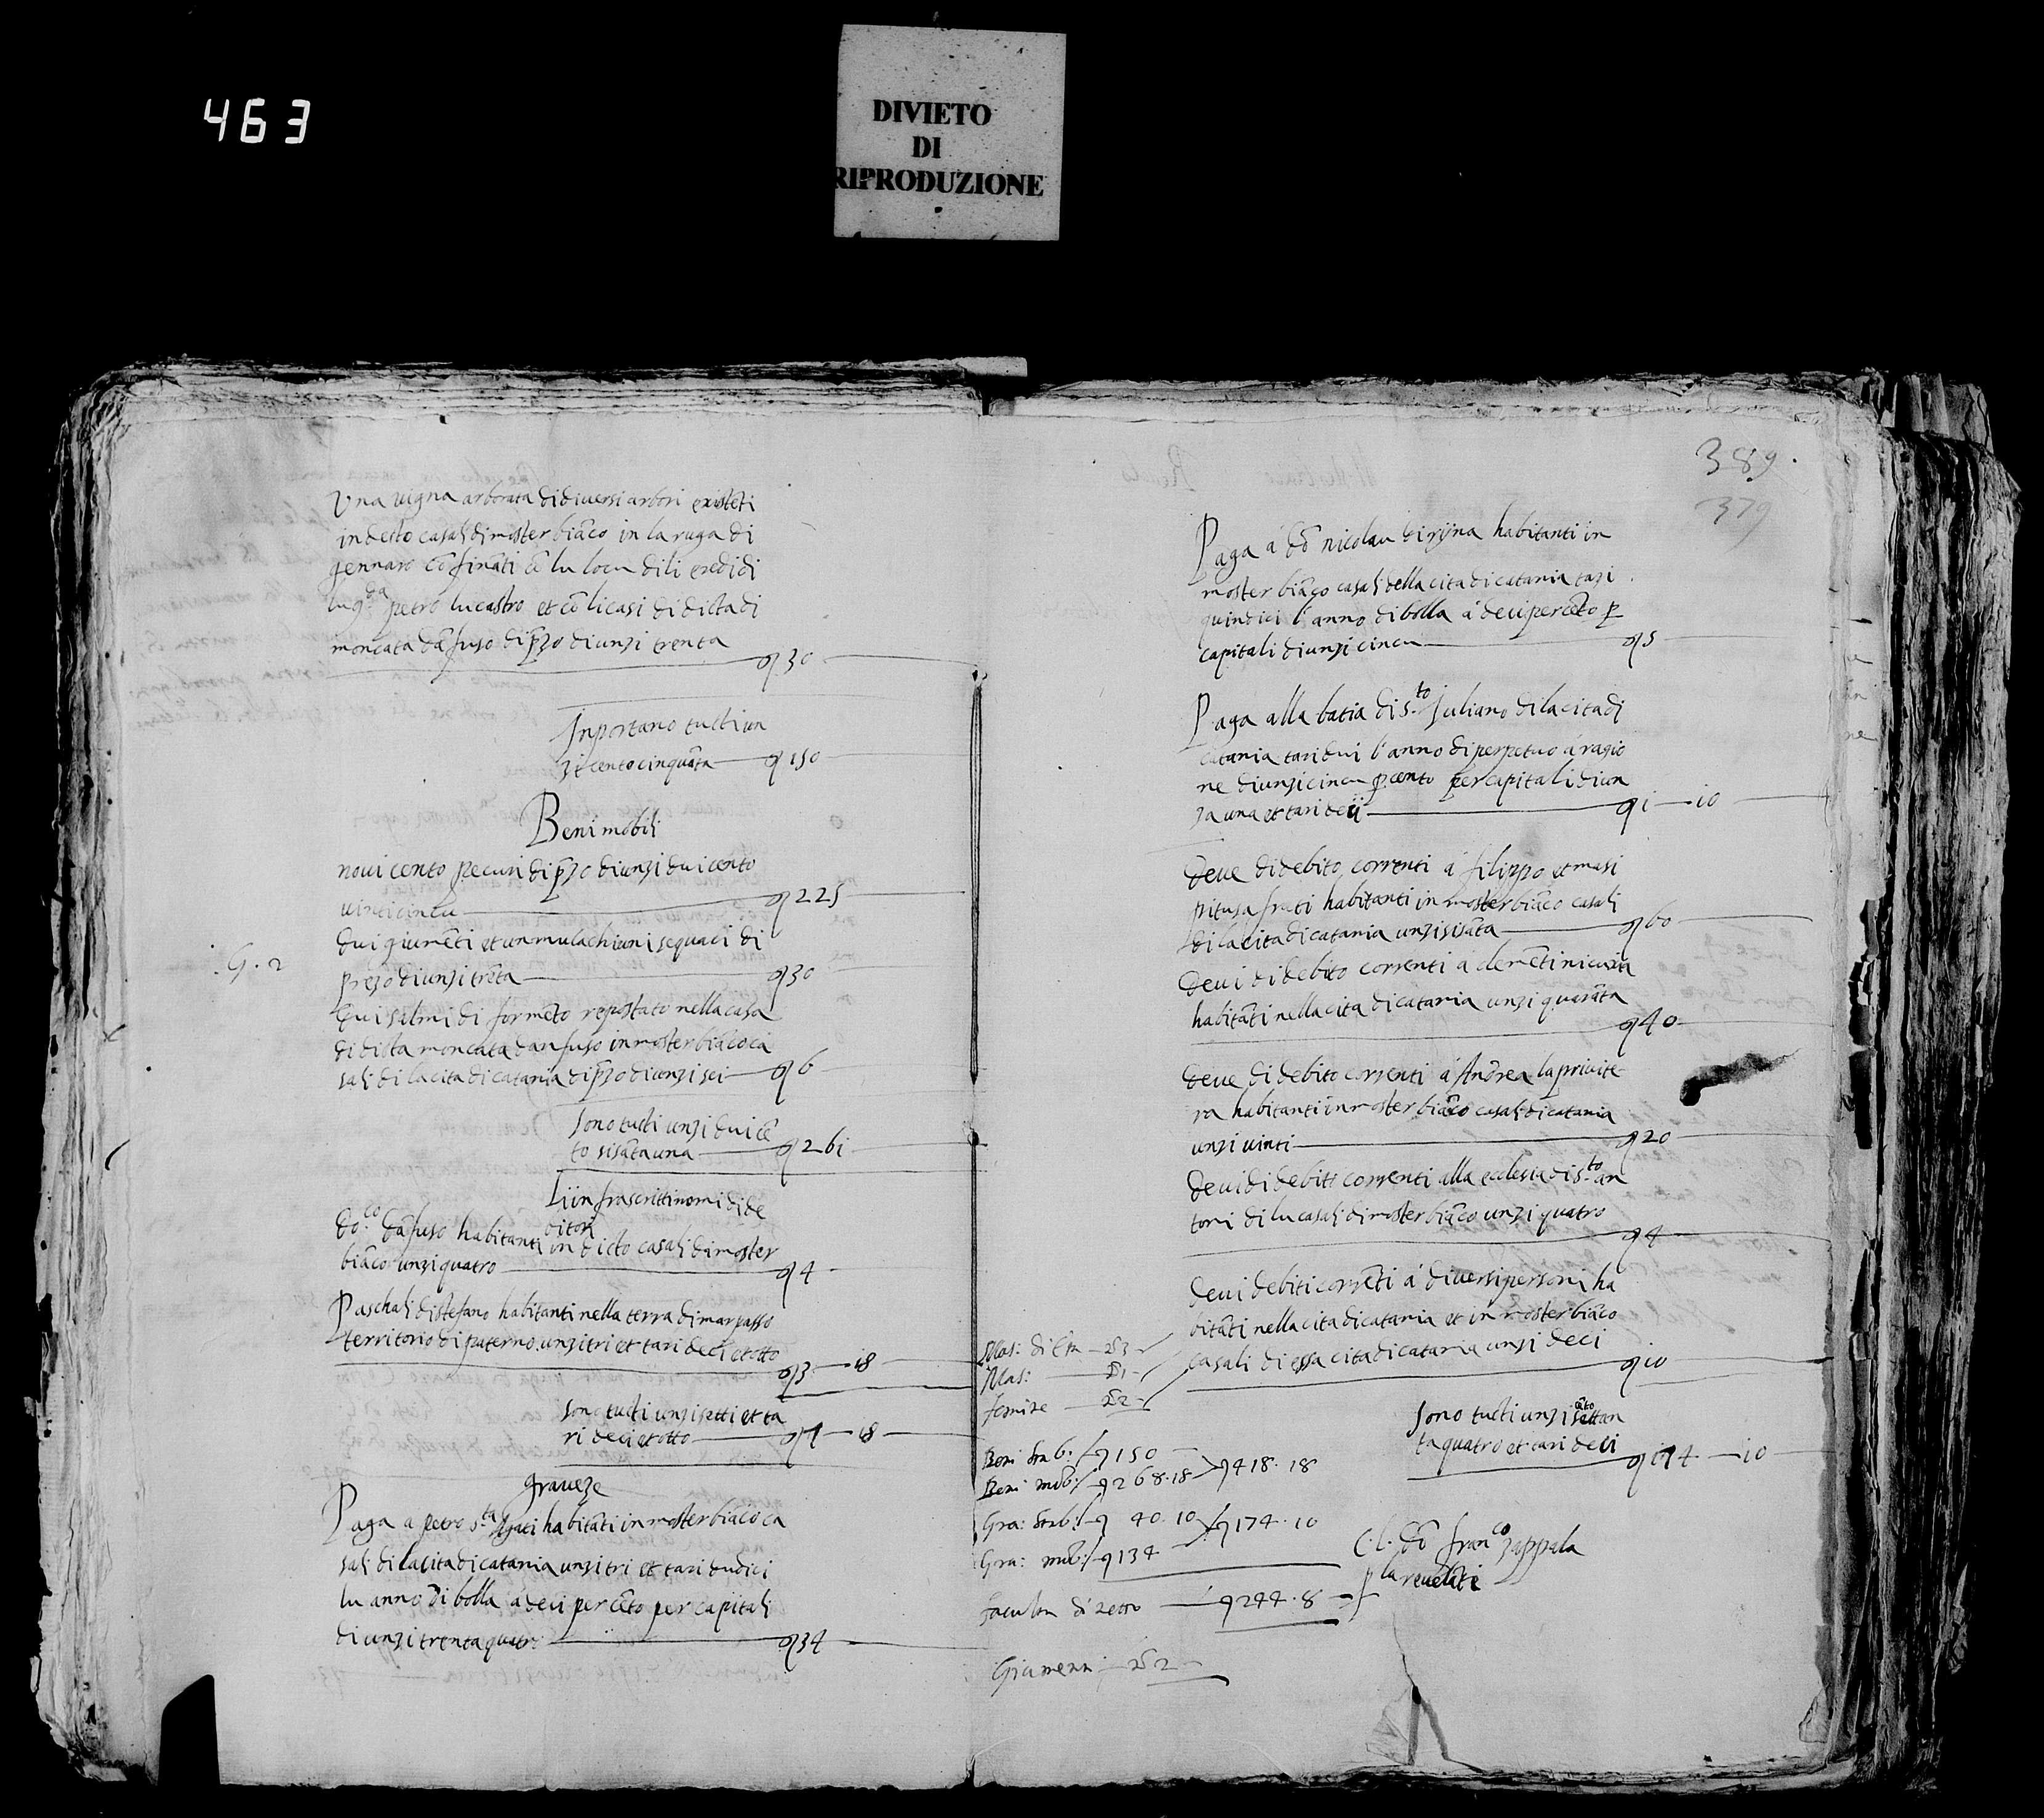 463
DIVIETO
DI
RIPRODUZIONE
Una vigna arborata di diversi arbori existēti
in detto casali di moster biāco in la ruga di
gennaro cō fināti cō lu locu di li eredi di
lu q.da petro lu castro et cō li casi di dicta di
moncata dāfuso di p̄zo di unzi trenta
30
Inportano tucti un
zi cento cinquāta 150
Beni mobili
novi cento pecuri di p̄zo di unzi dui cēto
vinti cincu 225
.G. 2
dui giumēti et un mulachiuni sequaci di
prezo di unzi trēta 30
dui salmi di formēto repostato nella casa
di dicta moncata danfuso in moster biāco ca
sali di la cita di catania di p̄zo di unzi sei 6
sono tucti unzi dui cē
to sisāta una 261
Li infrascritti nomi di de
bitori
Do.co dāfuso habitanti in dicto casali di moster
biāco unzi quatro 4
Paschali di stefano habitanti nella terra di mar passo
territorio di paterno unzi tri et tari deci et otto
3 18
sono tucti unzi setti et ta
ri deci et otto 7 18
Graveze
Paga a petro s.ta gati habitāti in moster biāco ca
sali di la cita di catania unzi tri et tari dudici
lu anno di bolla á deci per cēto per capitali
di unzi trenta quatro 34
389.
379
Paga á dō nicolau di rijna habitanti in
moster biāco casali della cita di catania tari
quindici l'anno di bolla á deci per cēto p
capitali di unzi cincu 5
Paga alla batia di s.to Juliano di la cita di
catania tari dui l'anno di perpetuo á ragio
ne di unzi cincu p cento per capitali di un
za una et tari decii 1 10
deve di debito correnti á filippo et masi
pitusa frati habitanti in moster biāco casali
di la cita di catania unzi sisāta 60
devi di debito correnti á clemēti nicusia
habitāti nella cita di catania unzi quarāta
40
deve di debito correnti á Andrea la privite
ra habitanti in moster biāco casali di catania
unzi vinti 20
devi di debiti correnti alla ecclesia di s.to an
toni di lu casali di moster biāco unzi quatro
4
devi debiti corrēti á diversi personi ha
bitāti nella cita di catania et in moster biāco
casali di essa cita di catania unzi deci
10
sono tucti unzi cēto settan
ta quatro et tari deci
174 10
Mas: di Età 3
Mas: 1
femine 2
Beni Stab: 150
Beni mob: 268.18 418.18
Gra: Stab: 40.10 174.10
Gra: mob: 134
facultà di netto 244.8
Giumenti 2
C.l. dō fran.co zappala
p la revelāti